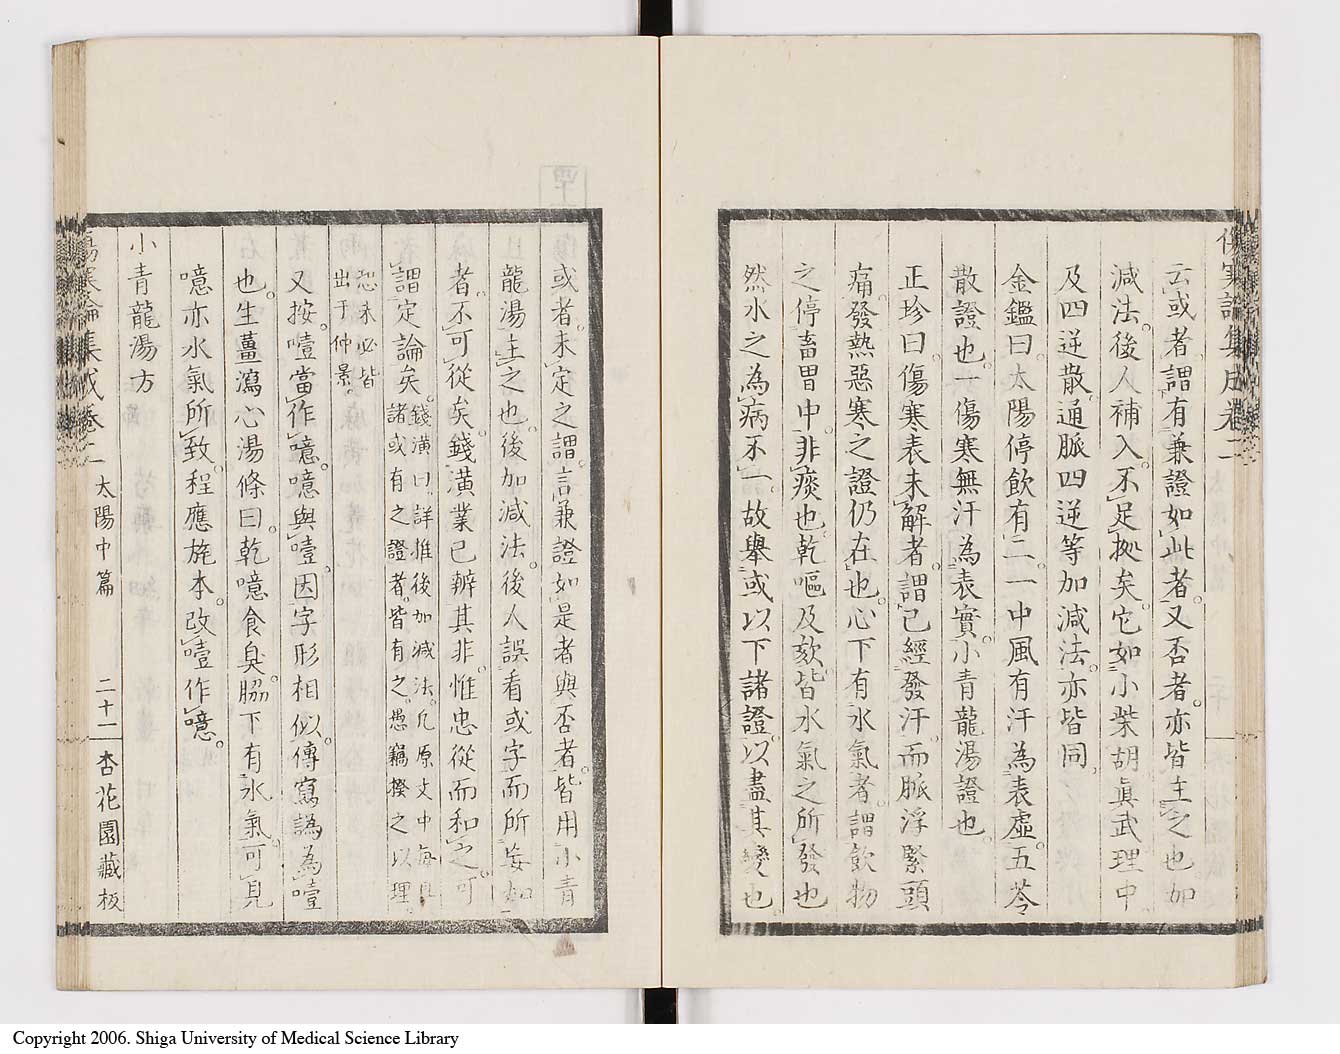 傷寒論集成卷二
云或者謂有兼證如此者。又否者。亦皆主之也如
減法。後人補入。不足拠矣。它如小柴胡眞武理中
及四逆散。通脈四逆等加減法。亦皆同。
金鑑曰。太陽停飲有二。一中風有汗為表虛。五苓
散證也。一傷寒無汗為表實。小青龍湯證也。
正珍曰。傷寒表未解者。謂已經發汗。而脈浮緊頭
痛。發熱惡寒之證仍在也。心下有水氣者。謂飲物
之停畜胃中。非痰也。乾嘔及欬。皆水氣之所發也
然水之為病不一。故舉或以下諸證。以盡其變也。
或者。未定之謂。言兼證如是者與否者。皆用小青
龍湯主之也。後加減法。後人誤看或字而所妄加
者。不可從矣。錢潢業已辨其非。惟忠從而和之。可
謂定論矣。錢潢曰。詳推後加減法。凡原文中每具
諸或有之證者。皆有之。愚竊揆之以理。
恐未必皆
出于仲景
又按。噎當作噫。噫與噎。因字形相似。傳寫譌為噎
也。生薑瀉心湯條曰。乾噫食臭。脇下有水氣。可見
噫亦水氣所致。程應旄本。改噎作噫。
小青龍湯方
傷寒論集成卷二 太陽中篇 二十二 杏花園藏板
Copyright 2006. Shiga University of Medical Science Library